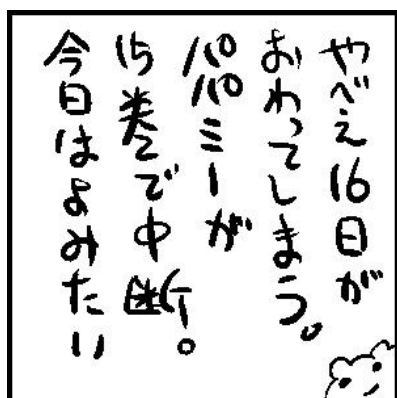 やべえ16日が
おわってしまう。
パパミーが
15巻で中断。
今日はよみたい